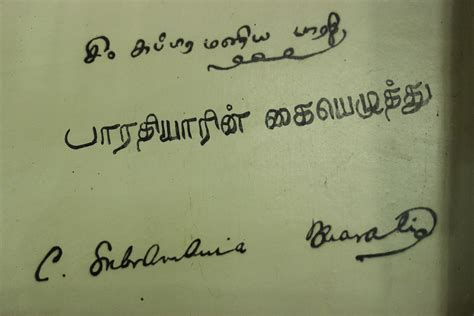 சி. சுப்பிரமணிய பாரதி
பாரதியாரின் கையெழுத்து
C. Subramania Bharati